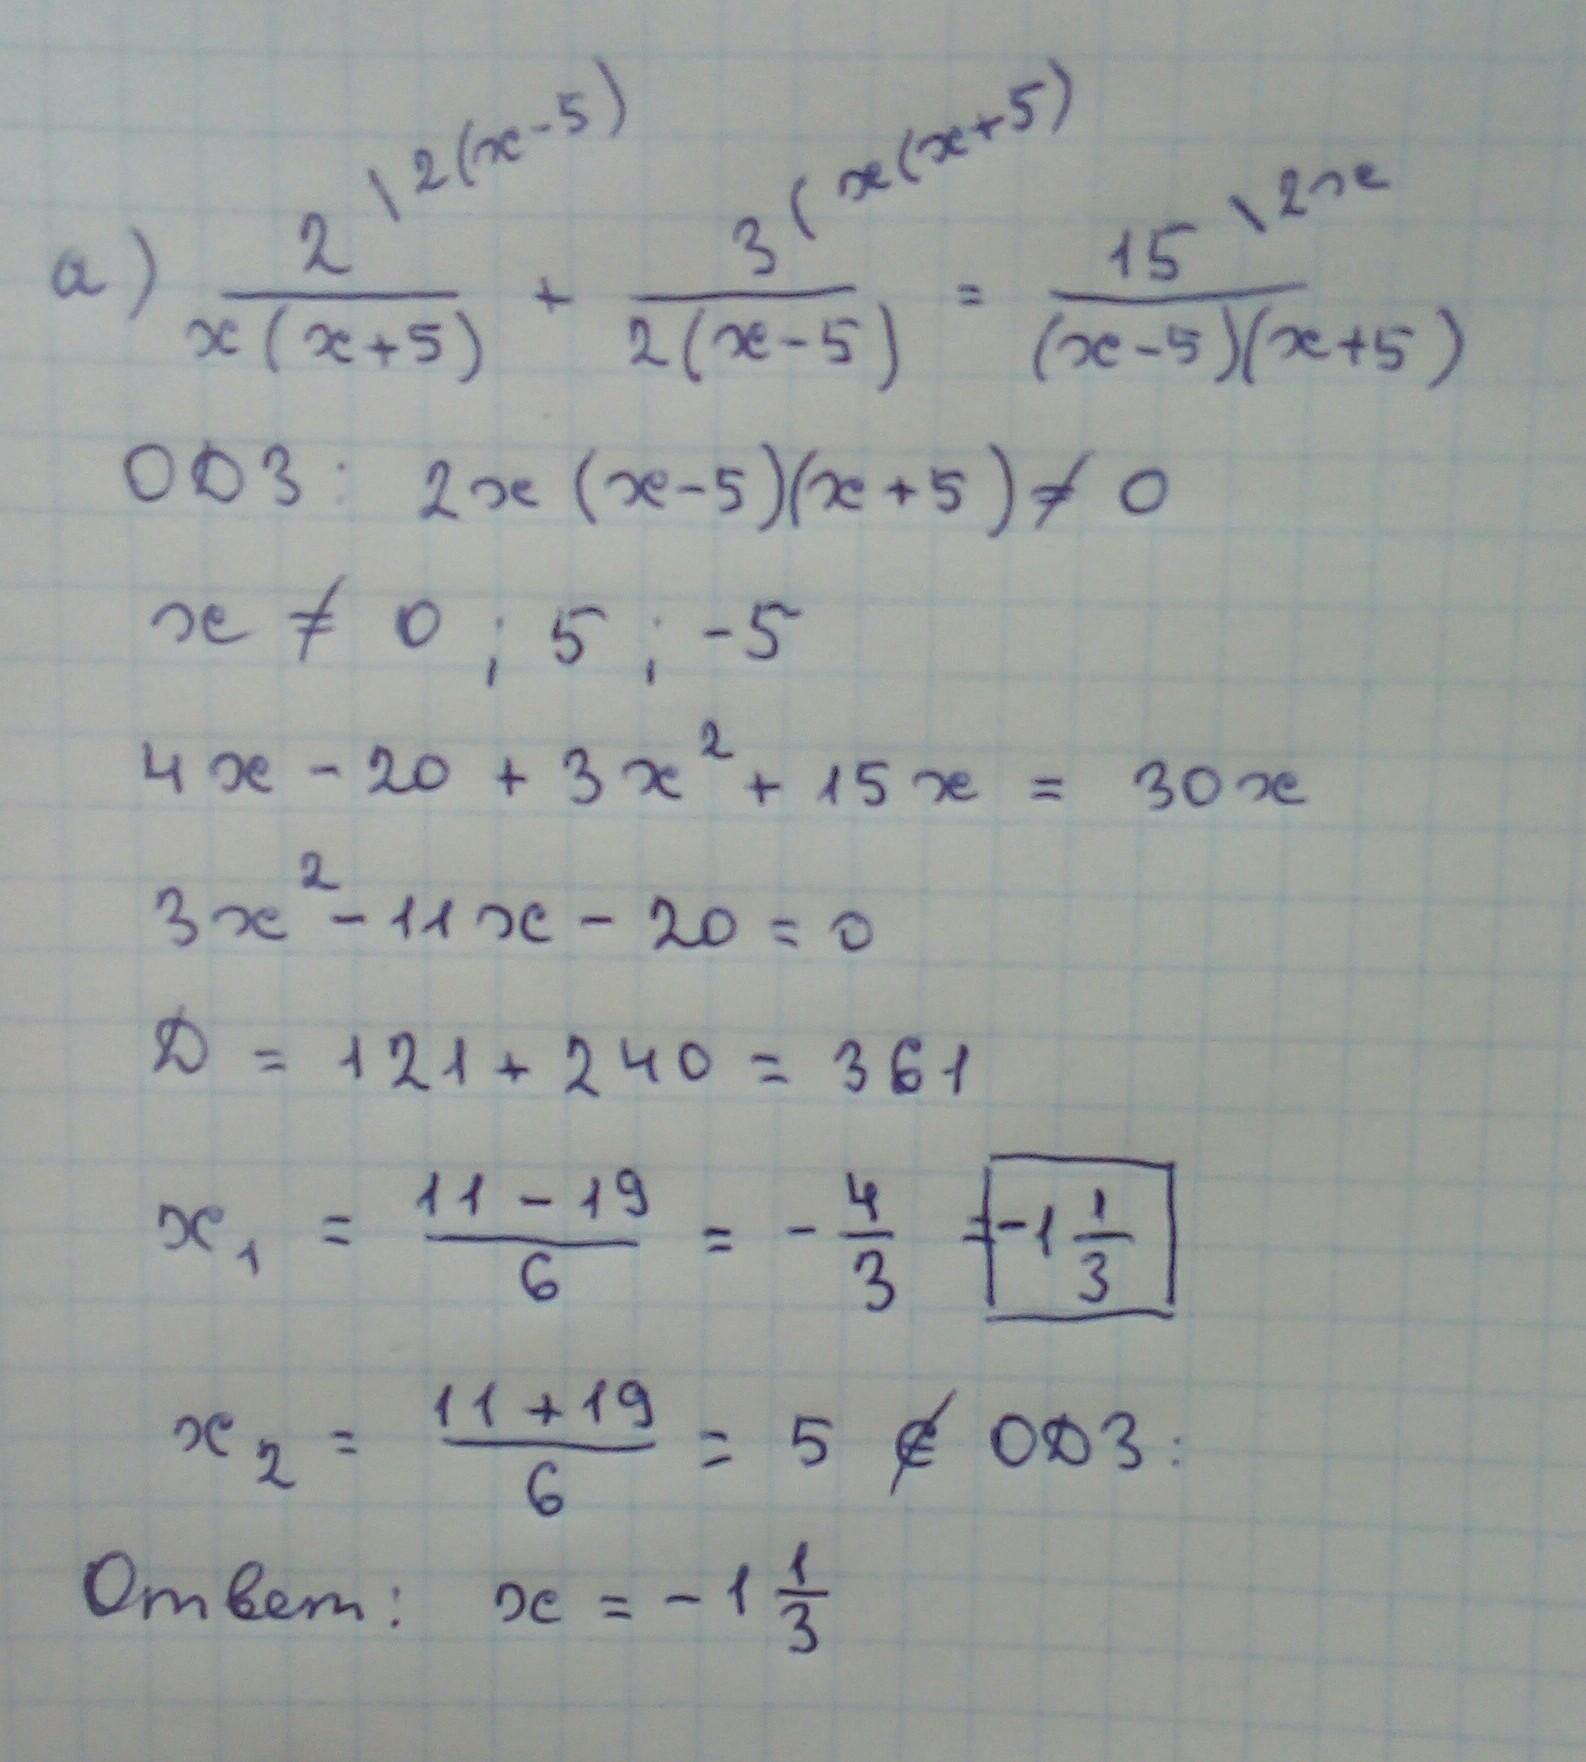 а) 2 \2(x-5) / x(x+5) + 3 (x(x+5) / 2(x-5) = 15 \2x / (x-5)(x+5)
ОДЗ: 2x(x-5)(x+5) ≠ 0
x ≠ 0 ; 5 ; -5
4x - 20 + 3x² + 15x = 30x
3x² - 11x - 20 = 0
Д = 121 + 240 = 361
x₁ = (11 - 19)/6 = - 4/3 = -1 1/3
x₂ = (11 + 19)/6 = 5 ∉ ОДЗ:
Ответ: x = -1 1/3